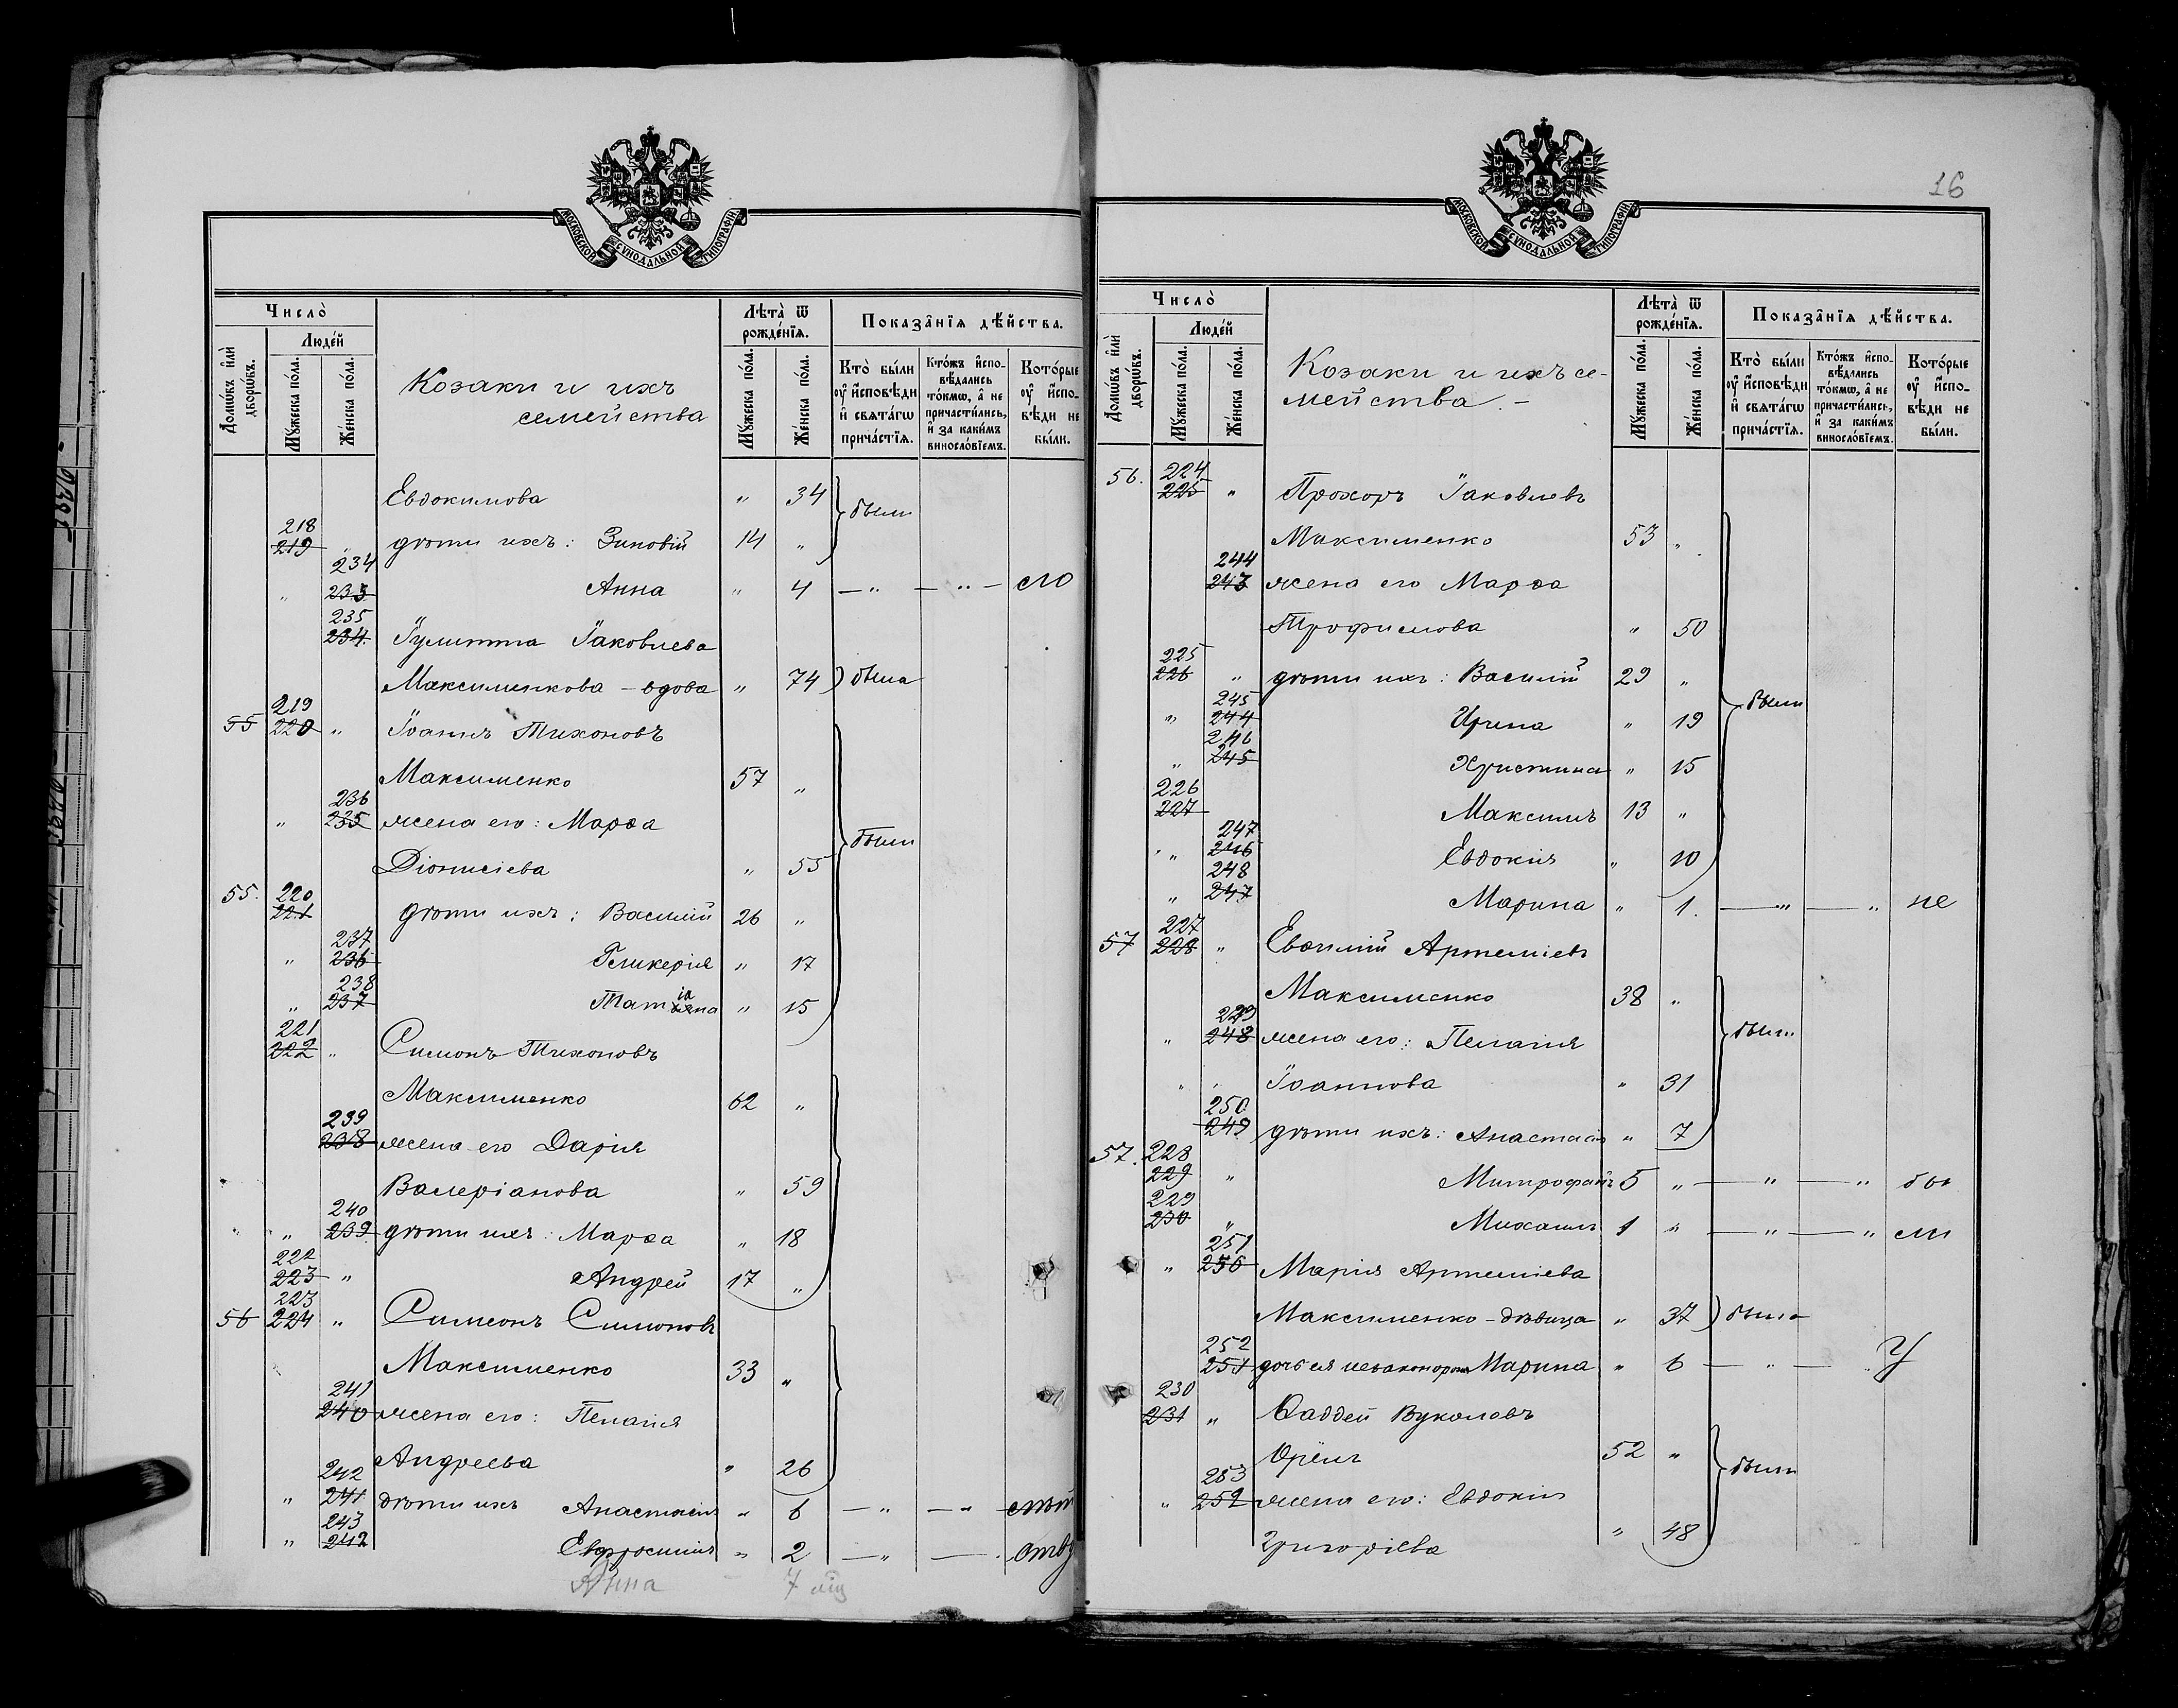 16
МОСКОВСКОЙ СѴНОДАЛЬНОЙ ТИПОГРАФІИ
Число̀
Людей
Домѡвъ и҆лѝ дворѡвъ.
Мꙋ́жеска по́ла.
Же́нска по́ла.
Козаки и ихъ
семейства
Лѣта̀ ѿ рожде́нїѧ.
Мꙋ́жеска по́ла.
Же́нска по́ла.
Показа̑нїѧ дѣ́йства.
Кто̀ бы́ли ᲂу҆ и҆сповѣди и҆ свѧта́гѡ прича́стїѧ.
Кто́жъ и҆сповѣ́дались то́кмѡ, а҆ не причасти́лись, и҆ за каки́мъ винослові́емъ.
Кото́рые ᲂу҆ и҆сповѣди не бы́ли.
Евдокимова " 34 были
218 219 " дѣти ихъ: Зиновій 14 "
" 234 233 Анна " 4 — " — " — сло
235 234 Іулитта Іаковлева
Максименкова - вдова " 74 была
55 219 220 " Іоаннъ Тихоновъ
Максименко 57 "
" 236 235 жена его: Марѳа были
Діонисіева " 55
55. 220 221 дѣти ихъ: Василій 26 "
" 237 236 Гликерія " 17
" 238 237 Татіана " 15
221 222 " Симонъ Тихоновъ
Максименко 62 "
239 238 жена его Дарія
Валеріанова " 59
" " 240 239 дѣти ихъ: Марѳа " 18
222 223 " Андрей 17 "
56 223 224 " Симеонъ Симоновъ
Максименко 33 "
241 240 жена его: Пелагія
Андреева " 26
" 242 241 дѣти ихъ Анастасія " 6 — " — "
" 243 242 Евфросинія " 2 — " —
Анна 7
МОСКОВСКОЙ СѴНОДАЛЬНОЙ ТИПОГРАФІИ
Число̀
Людей
Домѡвъ и҆лѝ дворѡвъ.
Мꙋ́жеска по́ла.
Же́нска по́ла.
Козаки и ихъ се-
мейства. -
Лѣта̀ ѿ рожде́нїѧ.
Мꙋ́жеска по́ла.
Же́нска по́ла.
Показа̑нїѧ дѣ́йства.
Кто̀ бы́ли ᲂу҆ и҆сповѣди и҆ свѧта́гѡ прича́стїѧ.
Кто́жъ и҆сповѣ́дались то́кмѡ, а҆ не причасти́лись, и҆ за каки́мъ винослові́емъ.
Кото́рые ᲂу҆ и҆сповѣди не бы́ли.
56. 224 225 " Прохоръ Іаковлевъ
Максименко 53 "
244 243 жена его Марѳа
Трофимова " 50
225 226 " дѣти ихъ: Василій 29 " были
" 245 244 Ирина " 19
" 246 245 Христина " 15
226 227 Максимъ 13 "
" 247 246 Евдокія " 10
" 248 247 Марина " 1. — " — " не
57 227 228 " Евѳимій Артеміевъ
Максименко 38 "
" 249 248 жена его: Пелагія были
" Іоаннова " 31
250 249 дѣти ихъ: Анастасія " 7
57. 228 229 " Митрофанъ 5 " — " — " бы
229 230 " Михаилъ 1 " — " — " ли
" 251 250 Марія Артеміева
Максименко - дѣвица " 37 была
252 251 дочь ея незаконорожд Марина " 6 — " — " У
230 231 " Ѳаддей Вуколовъ
52 " были
" 253 252 жена его: Евдокія
Григоріева " 48